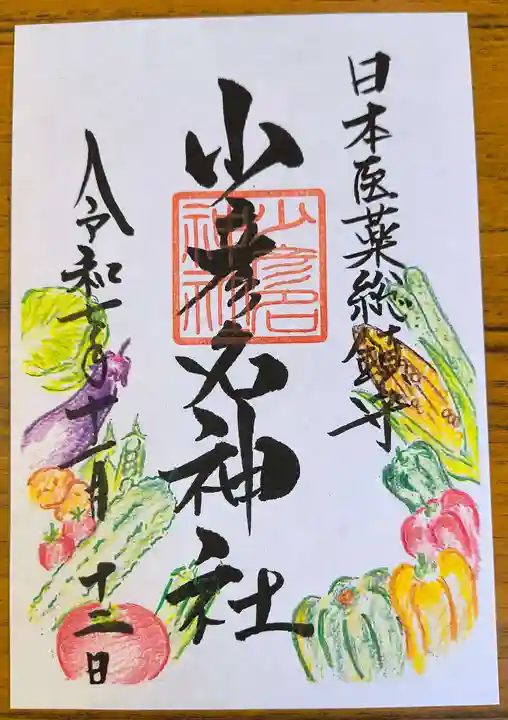 日本医薬総鎮守
少彦名神社
少彦名
神社
令和 年十一月十二日